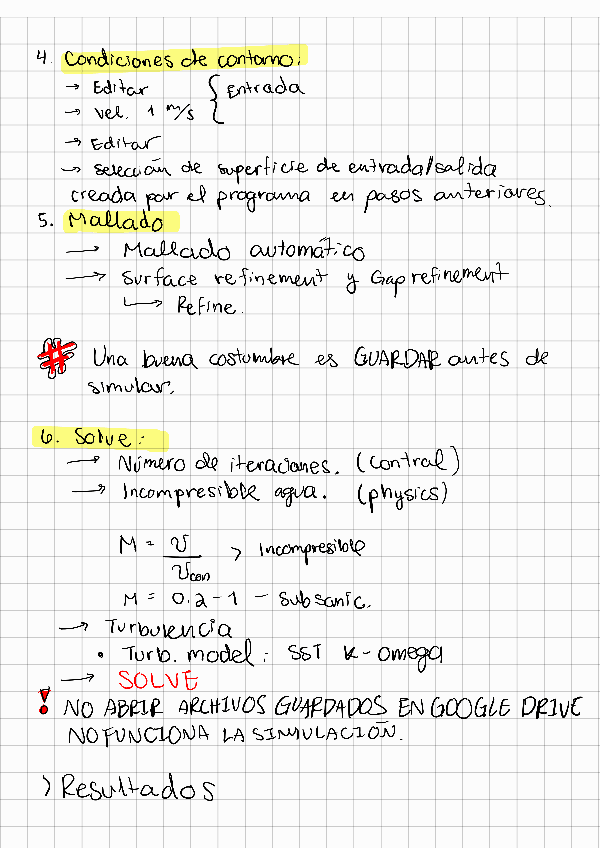 4. Condiciones de contorno:
→ Editar { Entrada
→ vel. 1 m/s
→ Editar
→ Selección de superficie de entrada/salida
creada por el programa en pasos anteriores.
5. Mallado
→ Mallado automático
→ Surface refinement y Gap refinement
↳ Refine.
# Una buena costumbre es GUARDAR antes de
simular.
6. Solve:
→ Número de iteraciones. (control)
→ Incompresible agua. (physics)
M = v / v_con > Incompresible
M = 0.2 - 1 - Subsonic.
→ Turbulencia
• Turb. model: SST k-omega
→ SOLVE
! NO ABRIR ARCHIVOS GUARDADOS EN GOOGLE DRIVE
NO FUNCIONA LA SIMULACIÓN.
> Resultados